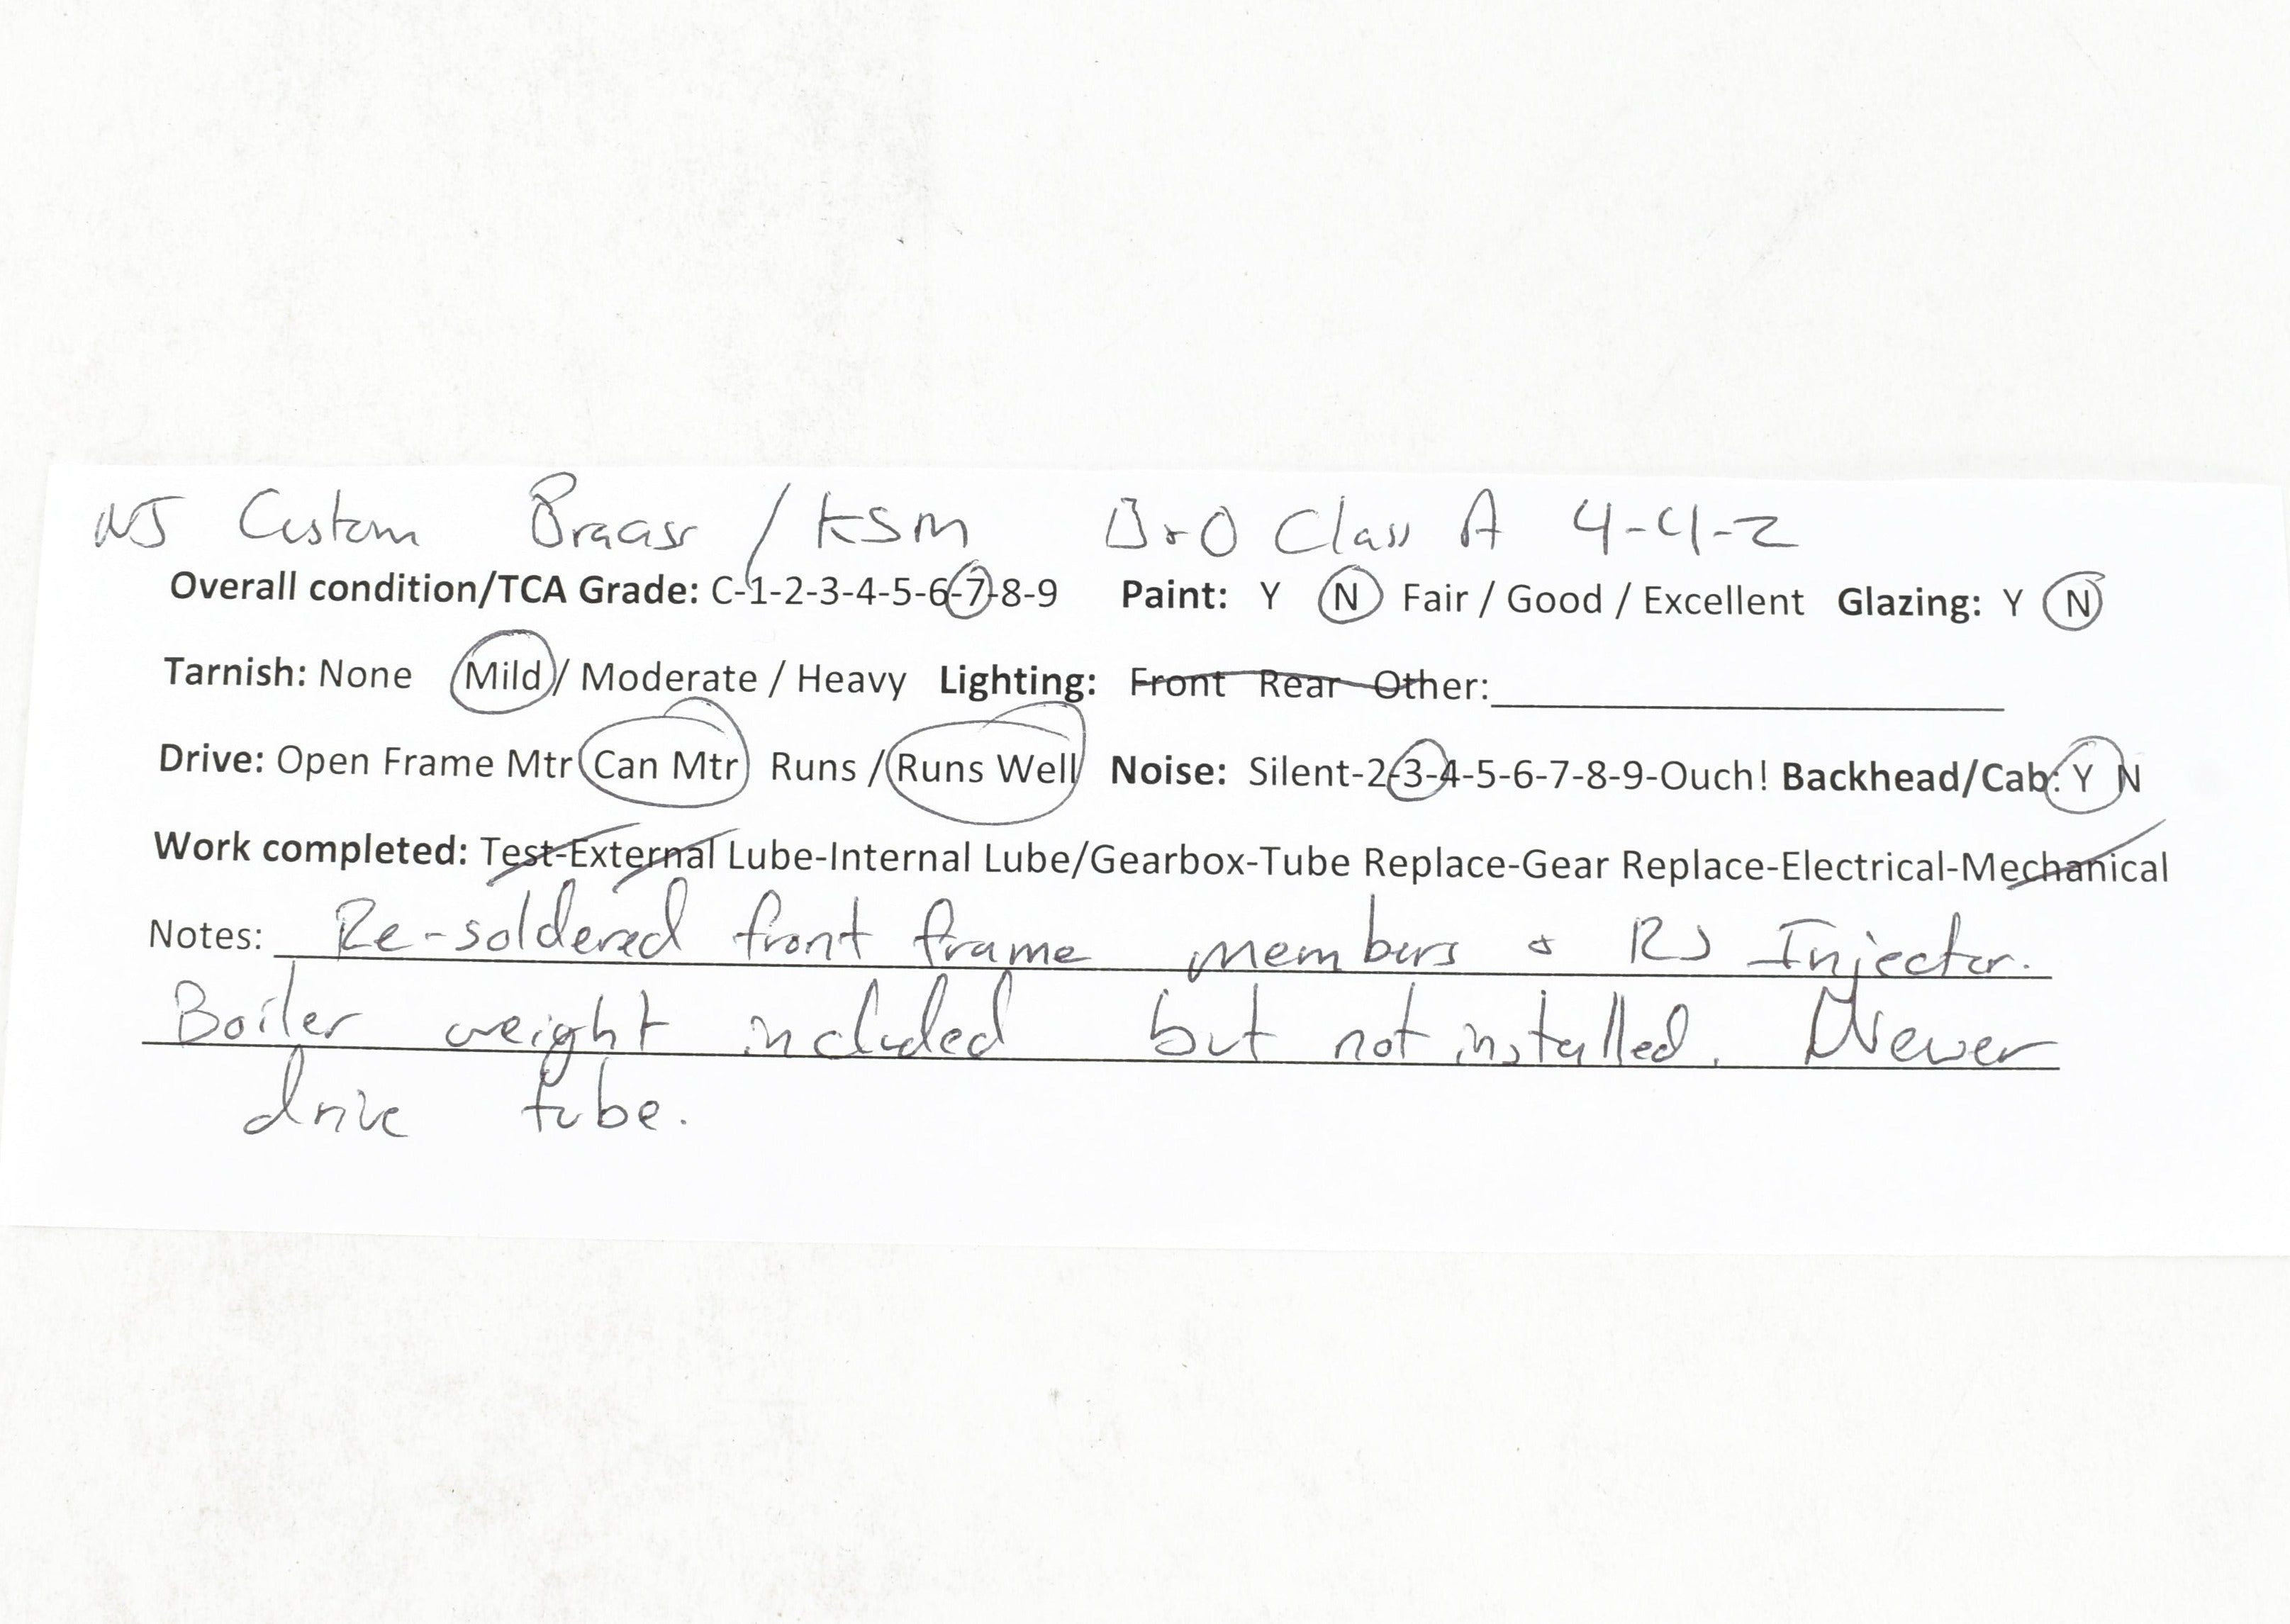 NJ Custom Brass / KSM B&O Class A 4-4-2
Overall condition/TCA Grade: C-1-2-3-4-5-6-7-8-9 Paint: Y N Fair / Good / Excellent Glazing: Y N
Tarnish: None Mild / Moderate / Heavy Lighting: Front Rear Other:
Drive: Open Frame Mtr Can Mtr Runs / Runs Well Noise: Silent-2-3-4-5-6-7-8-9-Ouch! Backhead/Cab: Y N
Work completed: Test-External Lube-Internal Lube/Gearbox-Tube Replace-Gear Replace-Electrical-Mechanical
Notes: Re-soldered front frame members & RS Injector.
Boiler weight included but not installed. Newer
drive tube.